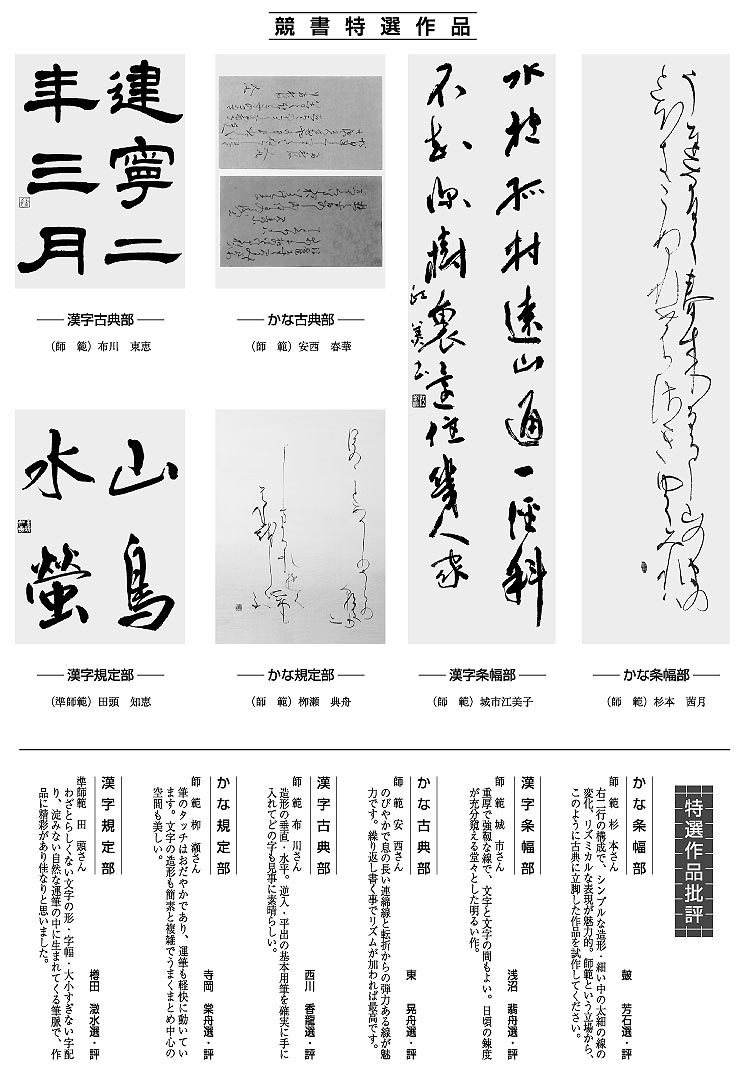 競書特選作品
建寧二
年三月
漢字古典部
（師　範）布川　東恵
かな古典部
（師　範）安西　春華
山鳥
水螢
漢字規定部
（準師範）田頭　知恵
かな規定部
（師　範）栁瀬　典舟
孤村遠山通一径斜
不知深樹裏還住幾人家
漢字条幅部
（師　範）城市江美子
かな条幅部
（師　範）杉本　茜月
特選作品批評
かな条幅部
皷　芳石選・評
師　範　杉　本さん
右二行の構成で、シンプルな造形・細い中の太細の線の
変化、リズミカルな表現が魅力的。師範という立場から、
このように古典に立脚した作品を試作してください。
漢字条幅部
浅沼　翡舟選・評
師　範　城　市さん
重厚で強靱な線で、文字と文字の間もよい。日頃の錬度
が充分窺える堂々とした明るい作。
かな古典部
東　晃舟選・評
師　範　安　西さん
のびやかで息の長い連綿線と転折からの弾力ある線が魅
力です。繰り返し書く事でリズムが加われば最高です。
漢字古典部
西川　香龍選・評
師　範　布　川さん
造形の垂直・水平。逆入・平出の基本用筆を確実に手に
入れてどの字も見事に素晴らしい。
かな規定部
寺岡　棠舟選・評
師　範　栁　瀬さん
筆のタッチはおだやかであり、運筆も軽快に動いてい
ます。文字の造形も簡素と複雑でうまくまとめ中心の
空間も美しい。
漢字規定部
樽田　澂水選・評
準師範　田　頭さん
わざとらしくない文字の形・字幅・大小すぎない字配
り、淀みない自然な運筆の中に生まれてくる筆脈で、作
品に精彩があり佳なりと思いました。